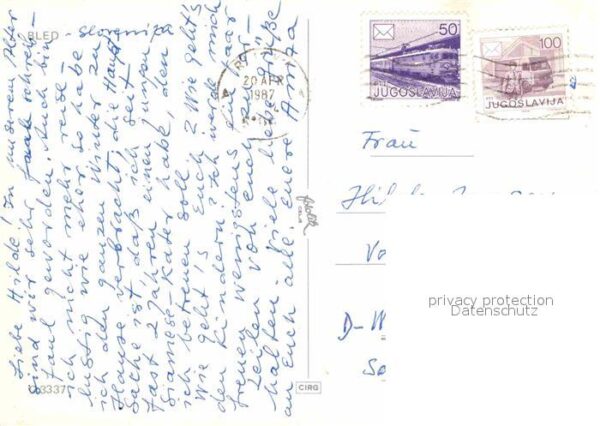 BLED - Slovenija
Liebe Hilde! In unserem Alter
sind wir sehr faul schreib-
faul geworden. Auch bin
ich nicht mehr reise-
lustig wie eher so habe
ich den ganzen Winter zu
Hause verbracht, die Haupt
Sache ist, daß ich seit
fast 2 Jahren einen jungen
Siamese-Kater habe, den
ich betreuen soll.
Wie geht's Euch? Wie geht's
den Kindern? Ich würde mich
freuen wenigstens ein paar
Zeilen von Euch zu er-
halten. Viele liebe Grüße
an Euch alle. Euere Anita
3337
CIRG
20 APR
1987
50
JUGOSLAVIJA
100
JUGOSLAVIJA
Frau
Hil
Vo
D-W
So
privacy protection
Datenschutz